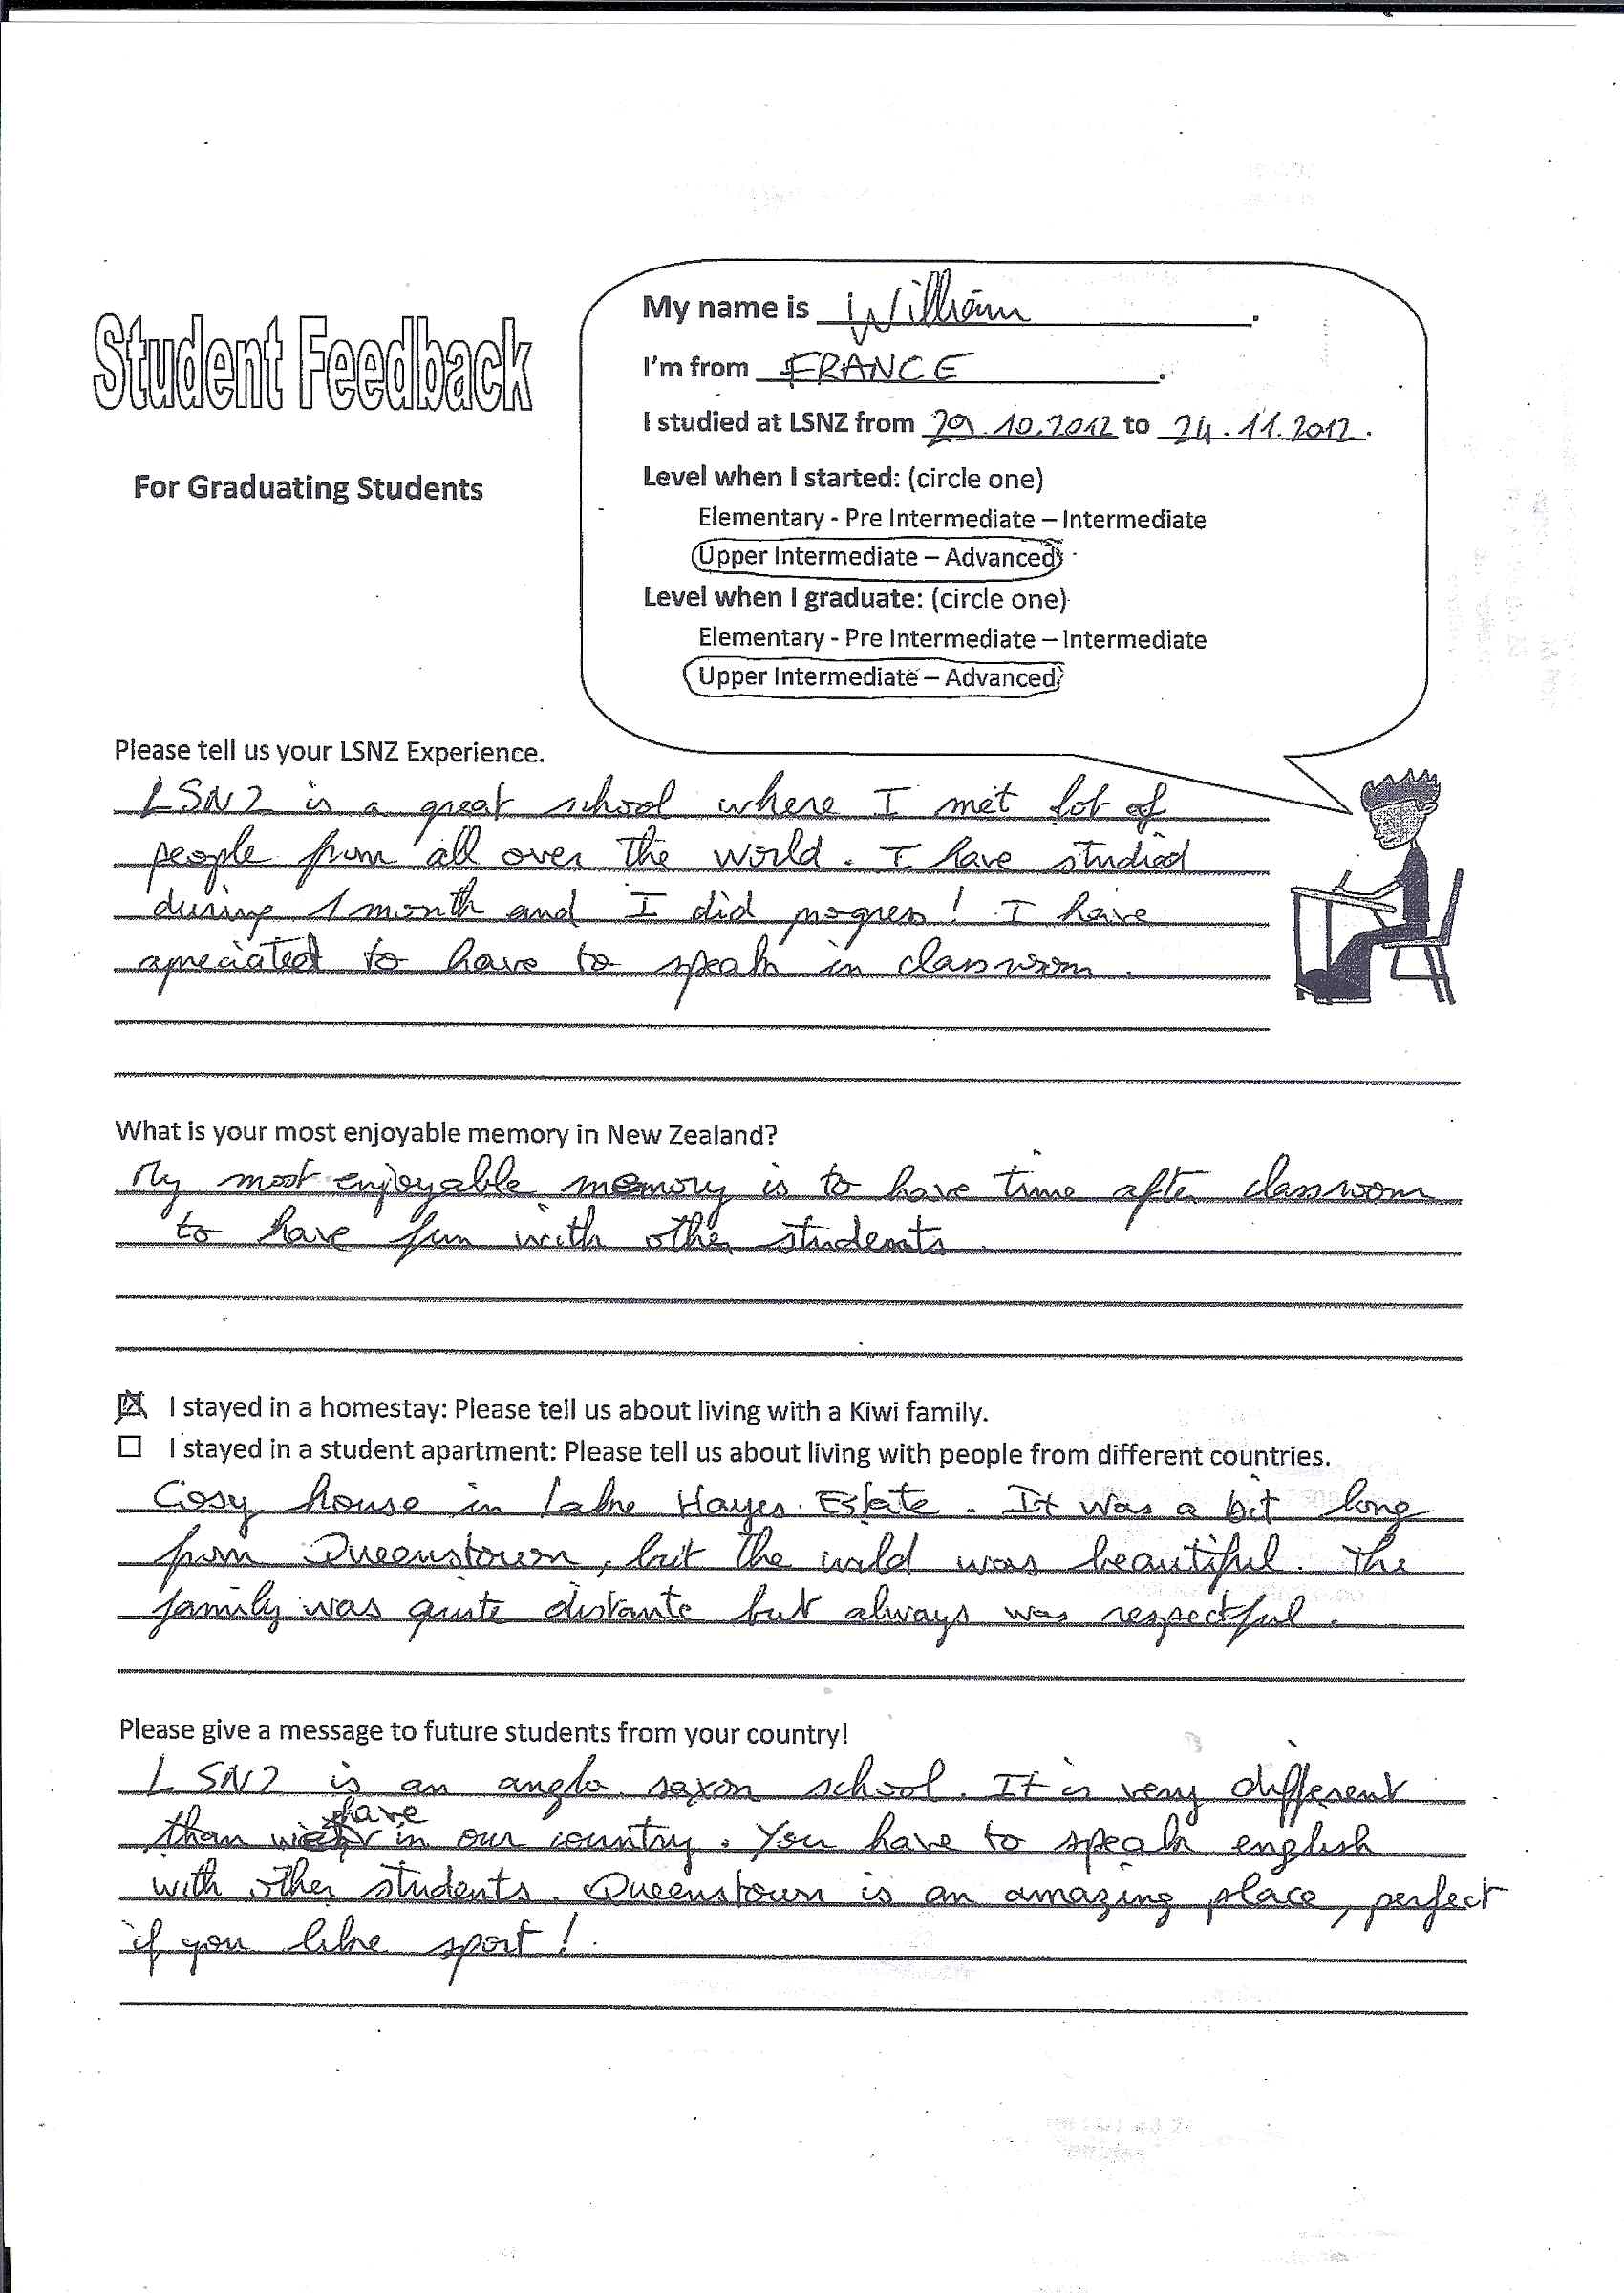 Student Feedback
For Graduating Students
My name is William.
I'm from FRANCE.
I studied at LSNZ from 29.10.2012 to 24.11.2012.
Level when I started: (circle one)
Elementary - Pre Intermediate – Intermediate
Upper Intermediate – Advanced
Level when I graduate: (circle one)
Elementary - Pre Intermediate – Intermediate
Upper Intermediate – Advanced
Please tell us your LSNZ Experience.
LSNZ is a great school where I met lot of
people from all over the world. I have studied
during 1 month and I did progress! I have
apreciated to have to speak in classroom.
What is your most enjoyable memory in New Zealand?
My most enjoyable memory is to have time after classroom
to have fun with other students.
I stayed in a homestay: Please tell us about living with a Kiwi family.
I stayed in a student apartment: Please tell us about living with people from different countries.
Cosy house in Lake Hayes Estate. It was a bit long
from Queenstown, but the wild was beautiful. The
family was quite distante but always was respectful.
Please give a message to future students from your country!
LSNZ is an anglo saxon school. It is very different
than we have in our country. You have to speak english
with other students. Queenstown is an amazing place, perfect
if you like sport!